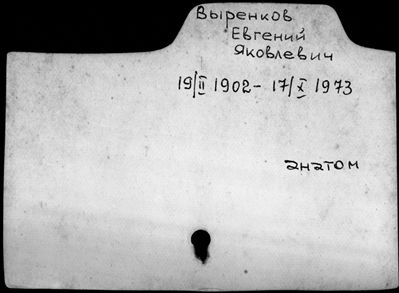 Выренков
Евгений
Яковлевич
19/II 1902 - 17/X 1973
анатом